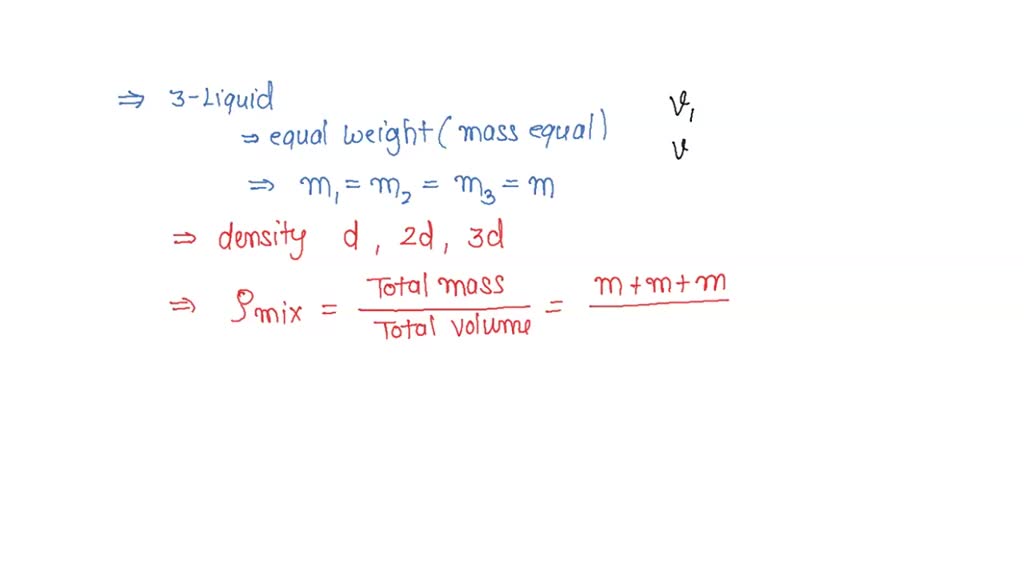 ⇒ 3-Liquid
⇒ equal weight (mass equal)
⇒ m₁ = m₂ = m₃ = m
⇒ density d, 2d, 3d
⇒ ρmix = Total mass / Total volume = m+m+m
V₁
V